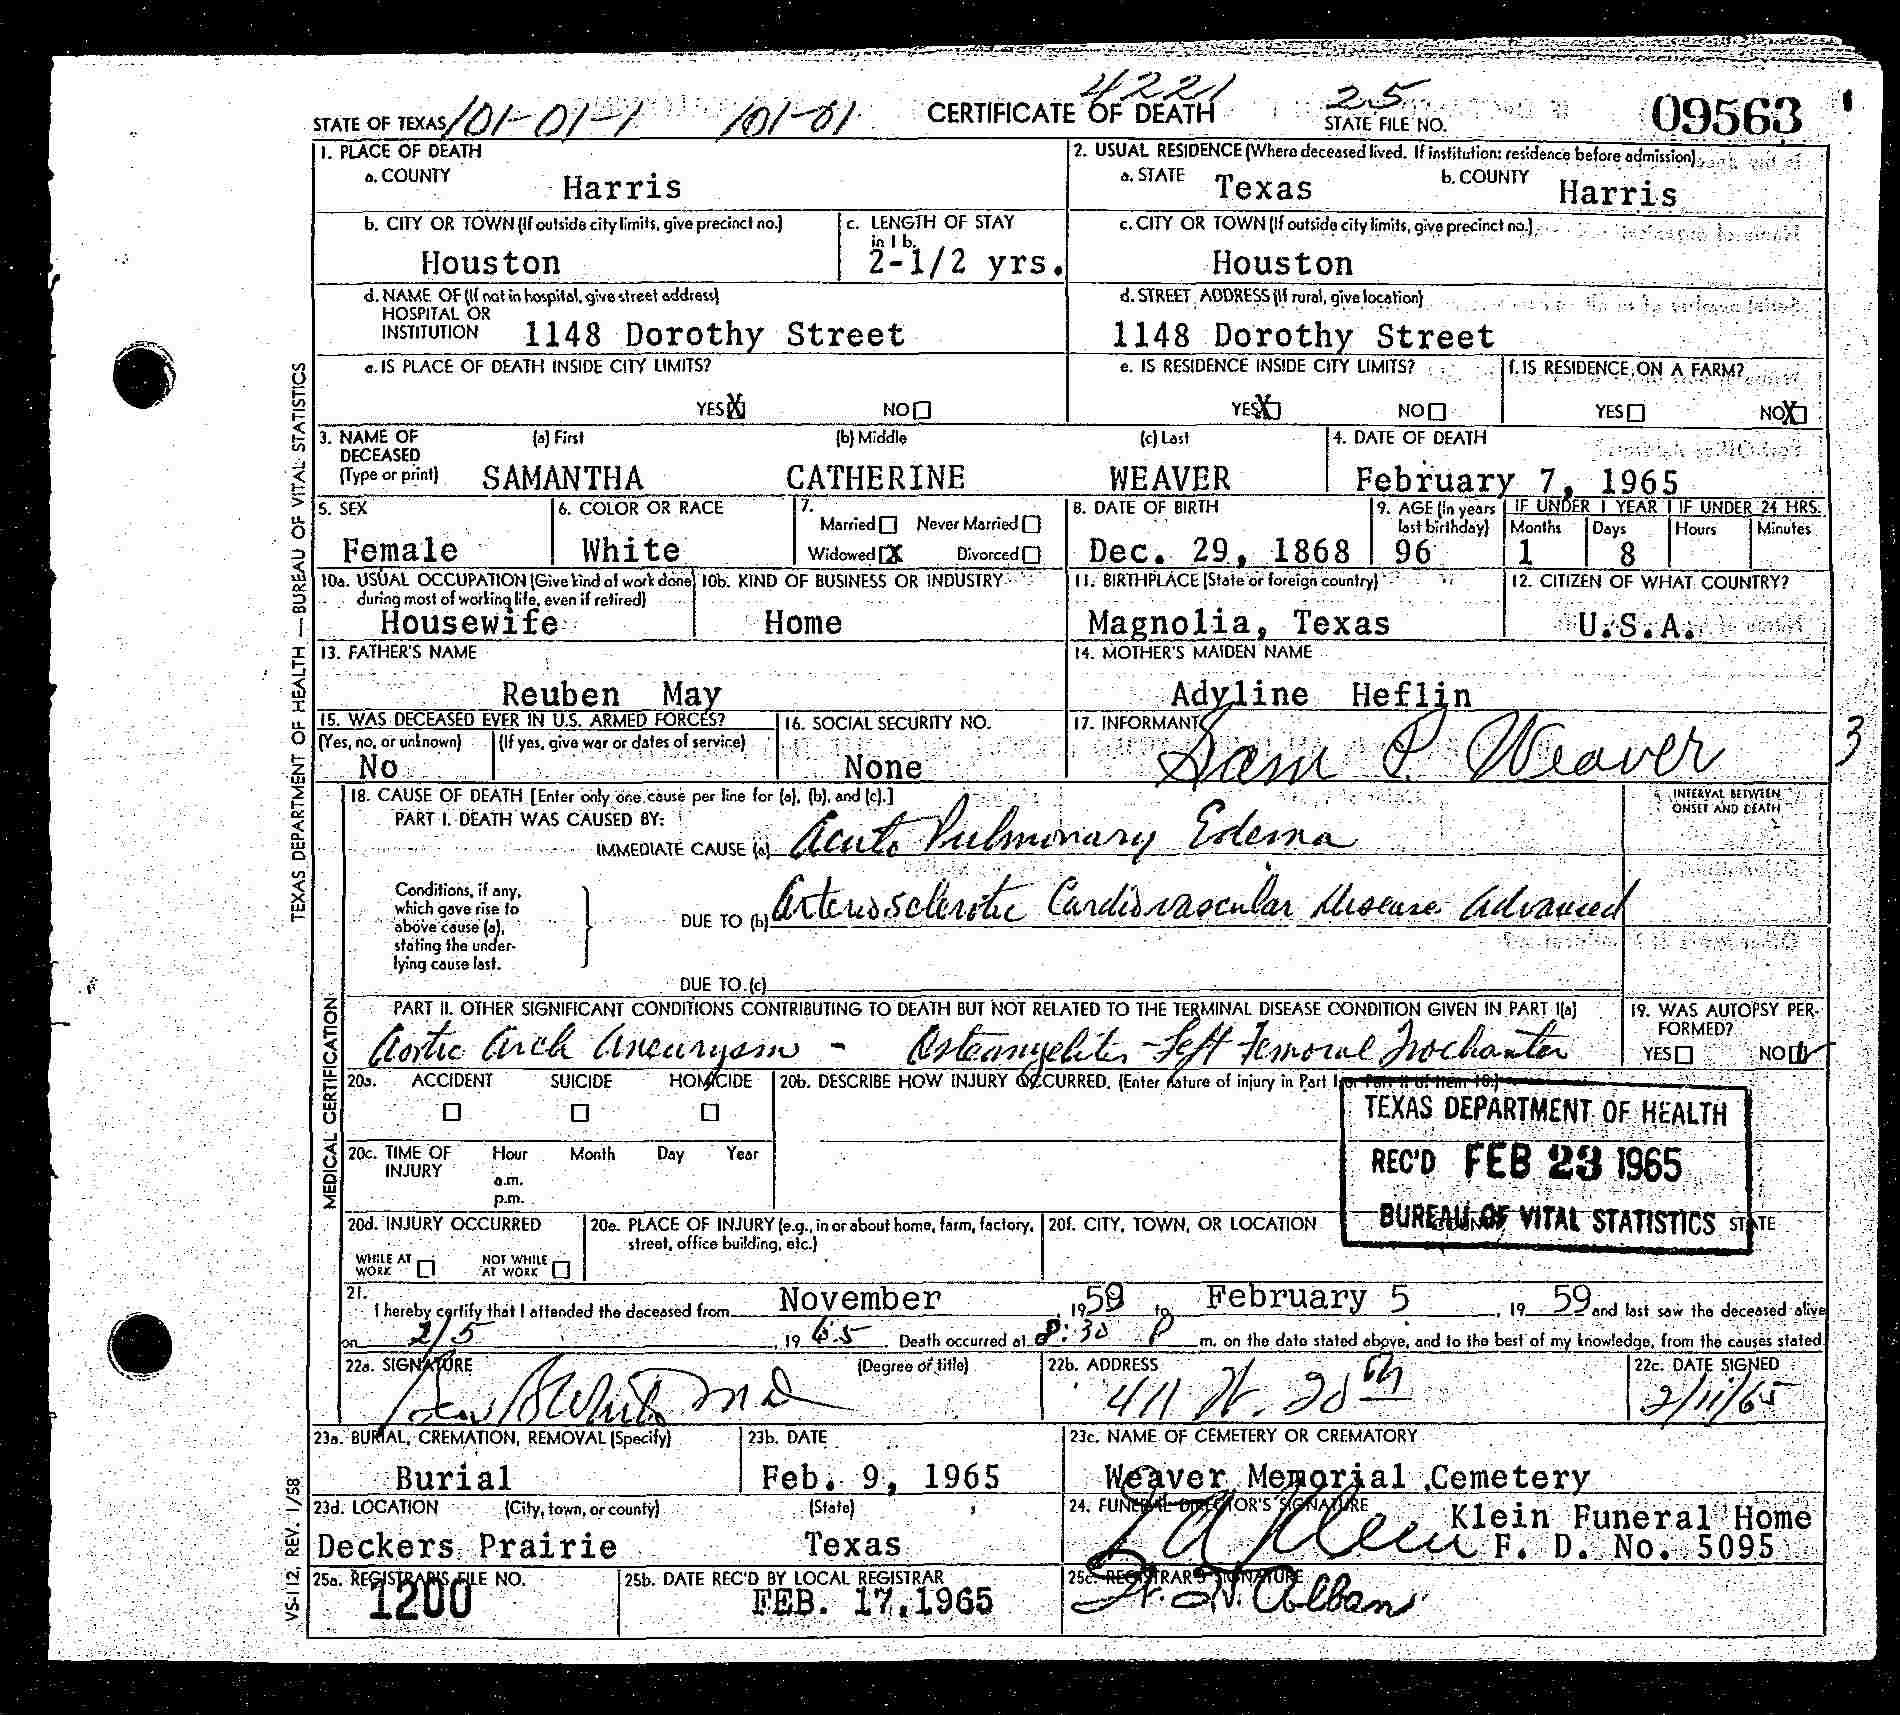 4221
25
STATE OF TEXAS 101-01-1 101-01 CERTIFICATE OF DEATH STATE FILE NO. 09563
1. PLACE OF DEATH
a. COUNTY Harris
2. USUAL RESIDENCE (Where deceased lived. If institution: residence before admission)
a. STATE Texas b. COUNTY Harris
b. CITY OR TOWN (If outside city limits, give precinct no.)
Houston
c. LENGTH OF STAY
in 1 b.
2-1/2 yrs.
c. CITY OR TOWN (If outside city limits, give precinct no.)
Houston
d. NAME OF (If not in hospital, give street address)
HOSPITAL OR
INSTITUTION 1148 Dorothy Street
d. STREET ADDRESS (If rural, give location)
1148 Dorothy Street
e. IS PLACE OF DEATH INSIDE CITY LIMITS?
YES X NO
e. IS RESIDENCE INSIDE CITY LIMITS?
YES X NO
f. IS RESIDENCE ON A FARM?
YES NO X
3. NAME OF
DECEASED
(Type or print)
(a) First (b) Middle (c) Last
SAMANTHA CATHERINE WEAVER
4. DATE OF DEATH
February 7, 1965
5. SEX
Female
6. COLOR OR RACE
White
7.
Married Never Married
Widowed X Divorced
8. DATE OF BIRTH
Dec. 29, 1868
9. AGE (In years
last birthday)
96
IF UNDER 1 YEAR IF UNDER 24 HRS.
Months Days Hours Minutes
1 8
10a. USUAL OCCUPATION (Give kind of work done
during most of working life, even if retired)
Housewife
10b. KIND OF BUSINESS OR INDUSTRY
Home
11. BIRTHPLACE (State or foreign country)
Magnolia, Texas
12. CITIZEN OF WHAT COUNTRY?
U.S.A.
13. FATHER'S NAME
Reuben May
14. MOTHER'S MAIDEN NAME
Adyline Heflin
15. WAS DECEASED EVER IN U.S. ARMED FORCES?
(Yes, no, or unknown) (If yes, give war or dates of service)
No
16. SOCIAL SECURITY NO.
None
17. INFORMANT
Sam P. Weaver
3
18. CAUSE OF DEATH [Enter only one cause per line for (a), (b), and (c).]
INTERVAL BETWEEN
ONSET AND DEATH
PART I. DEATH WAS CAUSED BY:
IMMEDIATE CAUSE (a) Acute Pulmonary Edema
Conditions, if any,
which gave rise to
above cause (a),
stating the under-
lying cause last.
DUE TO (b) Arteriosclerotic Cardiovascular Disease Advanced
DUE TO (c)
PART II. OTHER SIGNIFICANT CONDITIONS CONTRIBUTING TO DEATH BUT NOT RELATED TO THE TERMINAL DISEASE CONDITION GIVEN IN PART I(a)
Aortic Arch Aneurysm - Osteomyelitis - Left Femoral Trochanter
19. WAS AUTOPSY PER-
FORMED?
YES NO
20a. ACCIDENT SUICIDE HOMICIDE
20b. DESCRIBE HOW INJURY OCCURRED. (Enter nature of injury in Part I or Part II of item 18.)
TEXAS DEPARTMENT OF HEALTH
REC'D FEB 23 1965
BUREAU OF VITAL STATISTICS
20c. TIME OF
INJURY
Hour Month Day Year
a.m.
p.m.
20d. INJURY OCCURRED
WHILE AT
WORK
NOT WHILE
AT WORK
20e. PLACE OF INJURY (e.g., in or about home, farm, factory,
street, office building, etc.)
20f. CITY, TOWN, OR LOCATION COUNTY STATE
21.
I hereby certify that I attended the deceased from November, 1959 to February 5, 1959 and last saw the deceased alive
on 2/5, 1965. Death occurred at 8:30 P m. on the date stated above, and to the best of my knowledge, from the causes stated.
22a. SIGNATURE (Degree or title)
MD
22b. ADDRESS
411 W. 20th
22c. DATE SIGNED
2/11/65
23a. BURIAL, CREMATION, REMOVAL (Specify)
Burial
23b. DATE
Feb. 9, 1965
23c. NAME OF CEMETERY OR CREMATORY
Weaver Memorial Cemetery
23d. LOCATION (City, town, or county) (State)
Deckers Prairie Texas
24. FUNERAL DIRECTOR'S SIGNATURE
Klein Klein Funeral Home
F. D. No. 5095
25a. REGISTRAR'S FILE NO.
1200
25b. DATE REC'D BY LOCAL REGISTRAR
FEB. 17, 1965
25c. REGISTRAR'S SIGNATURE
TEXAS DEPARTMENT OF HEALTH — BUREAU OF VITAL STATISTICS
MEDICAL CERTIFICATION
VS-112, REV. 1/58